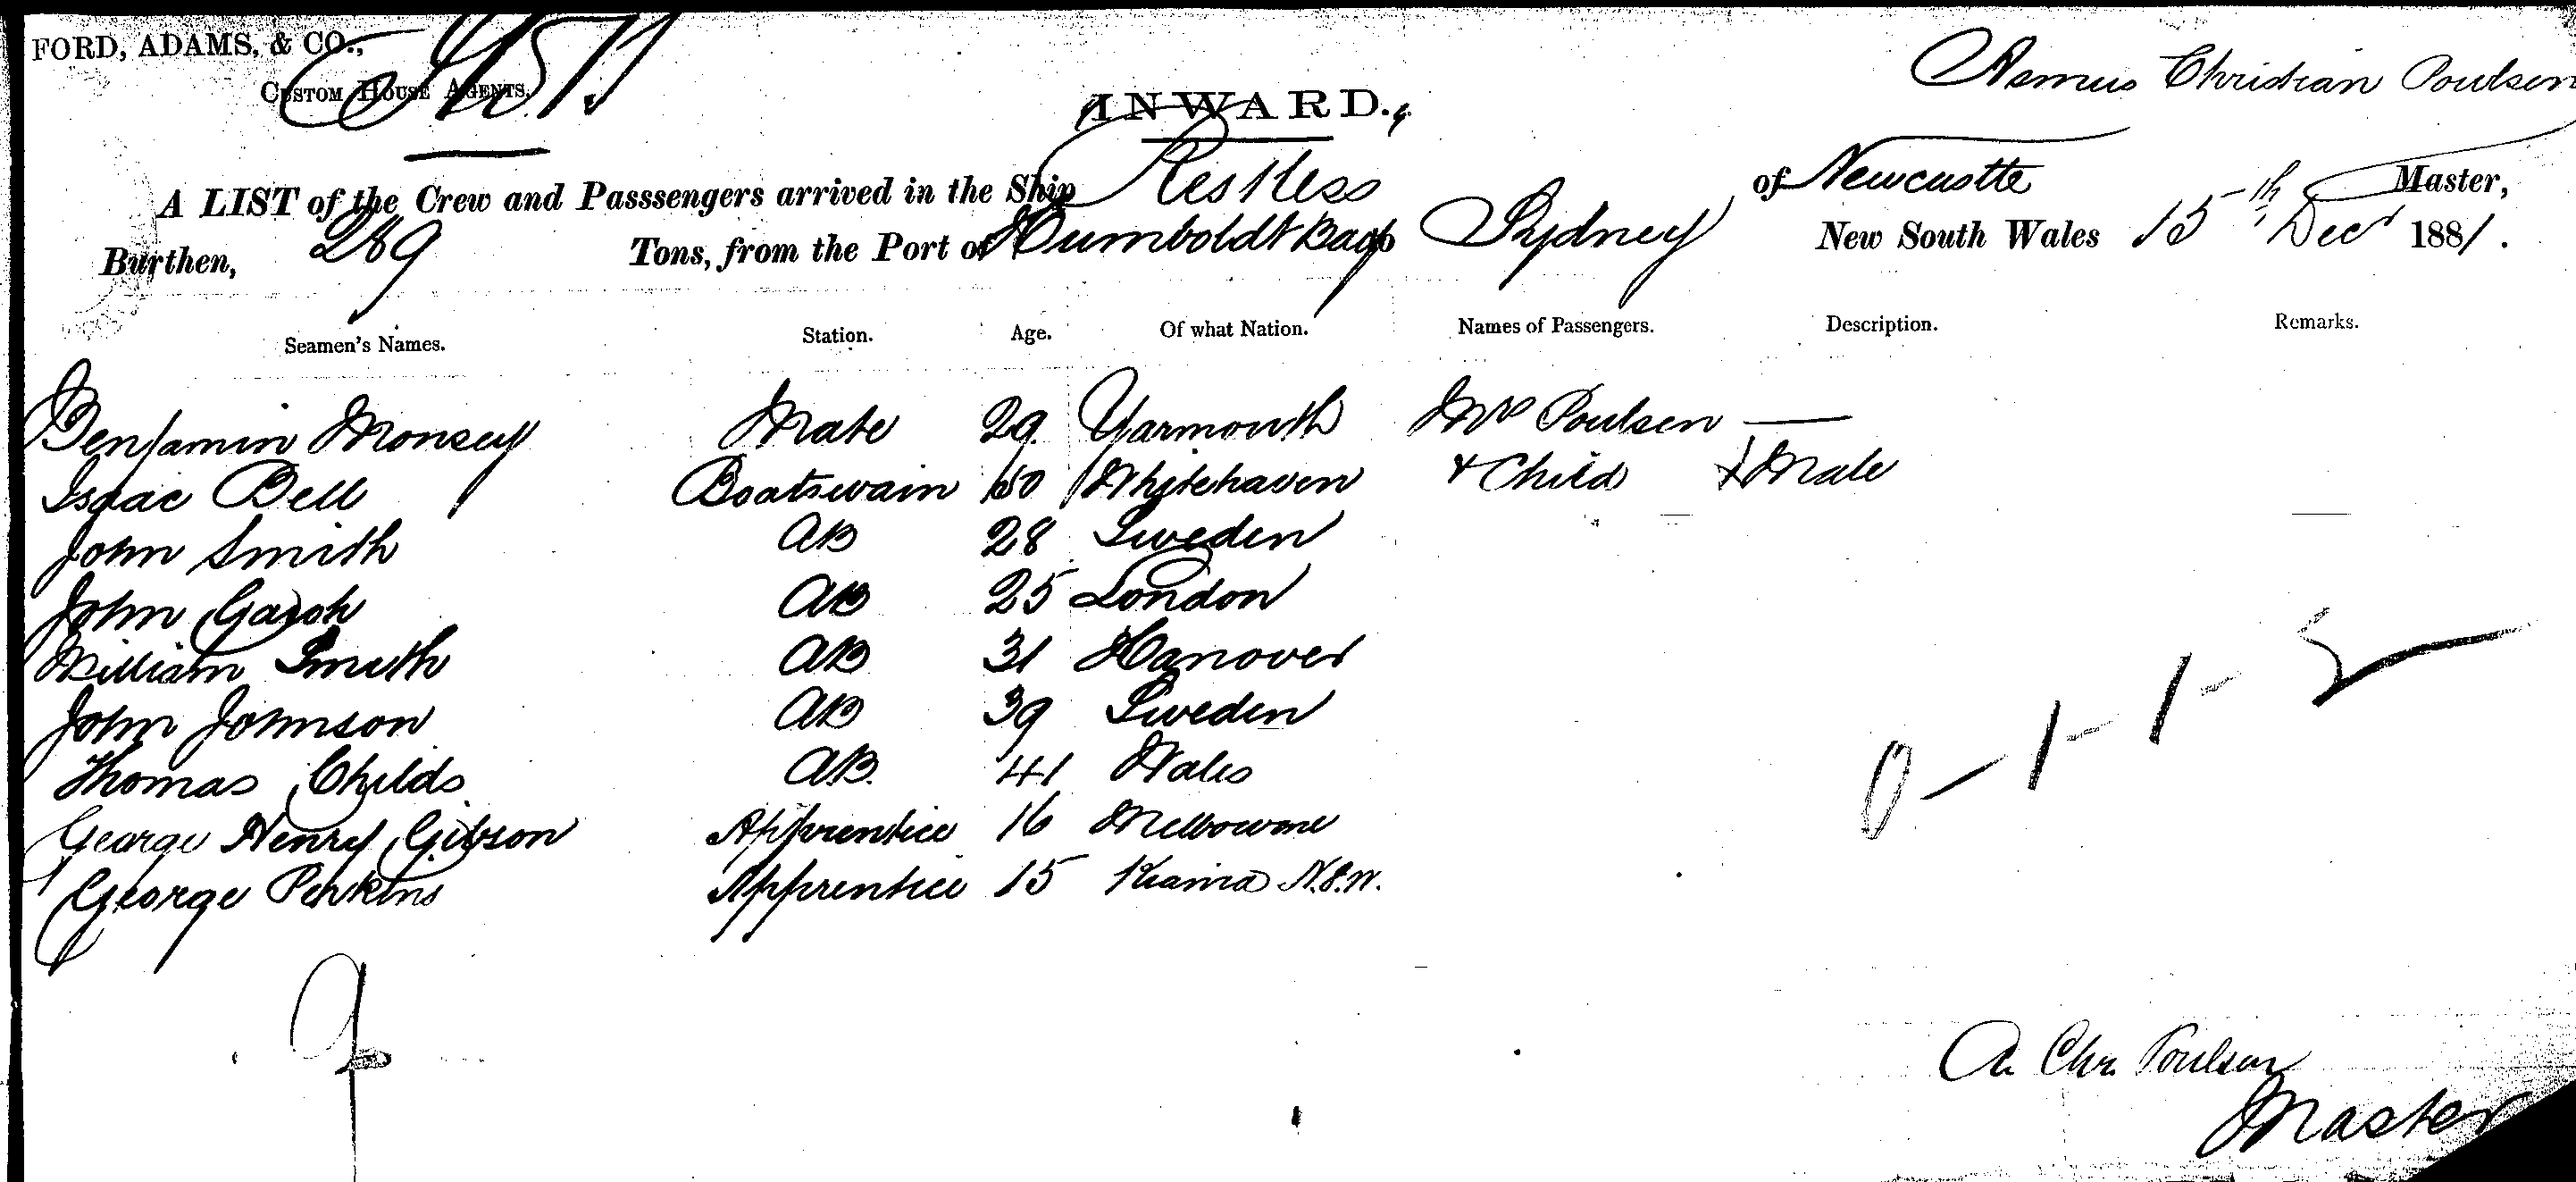 FORD, ADAMS, & CO.,
CUSTOM HOUSE AGENTS.
INWARD.
Asmus Christian Poulsen
A LIST of the Crew and Passsengers arrived in the Ship Restless of Newcastle Master,
Burthen, 289 Tons, from the Port of Humboldt Bay to Sydney New South Wales 15th Decr 1881.
Seamen's Names. Station. Age. Of what Nation. Names of Passengers. Description. Remarks.
Benjamin Monsey Mate 29 Yarmouth Mrs Poulsen —
Isaac Bell Boatswain 50 Whitehaven & Child Male
John Smith AB 28 Sweden
John AB 25 London
William Smith AB 31 Hanover
John Johnson AB 39 Sweden
Thomas Childs AB. 41 Wales
George Henry Gibson Apprentice 16 Melbourne
George Perkins Apprentice 15 Kiama N.S.W.
0 - 1 - 1 - 2
9
A. Chr. Poulsen
Master